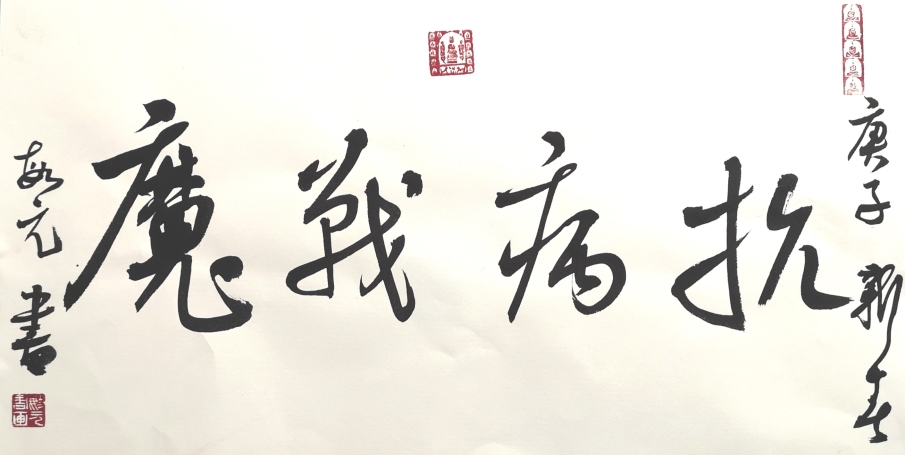 庚子 新春
抗病戰魔
元書
書画